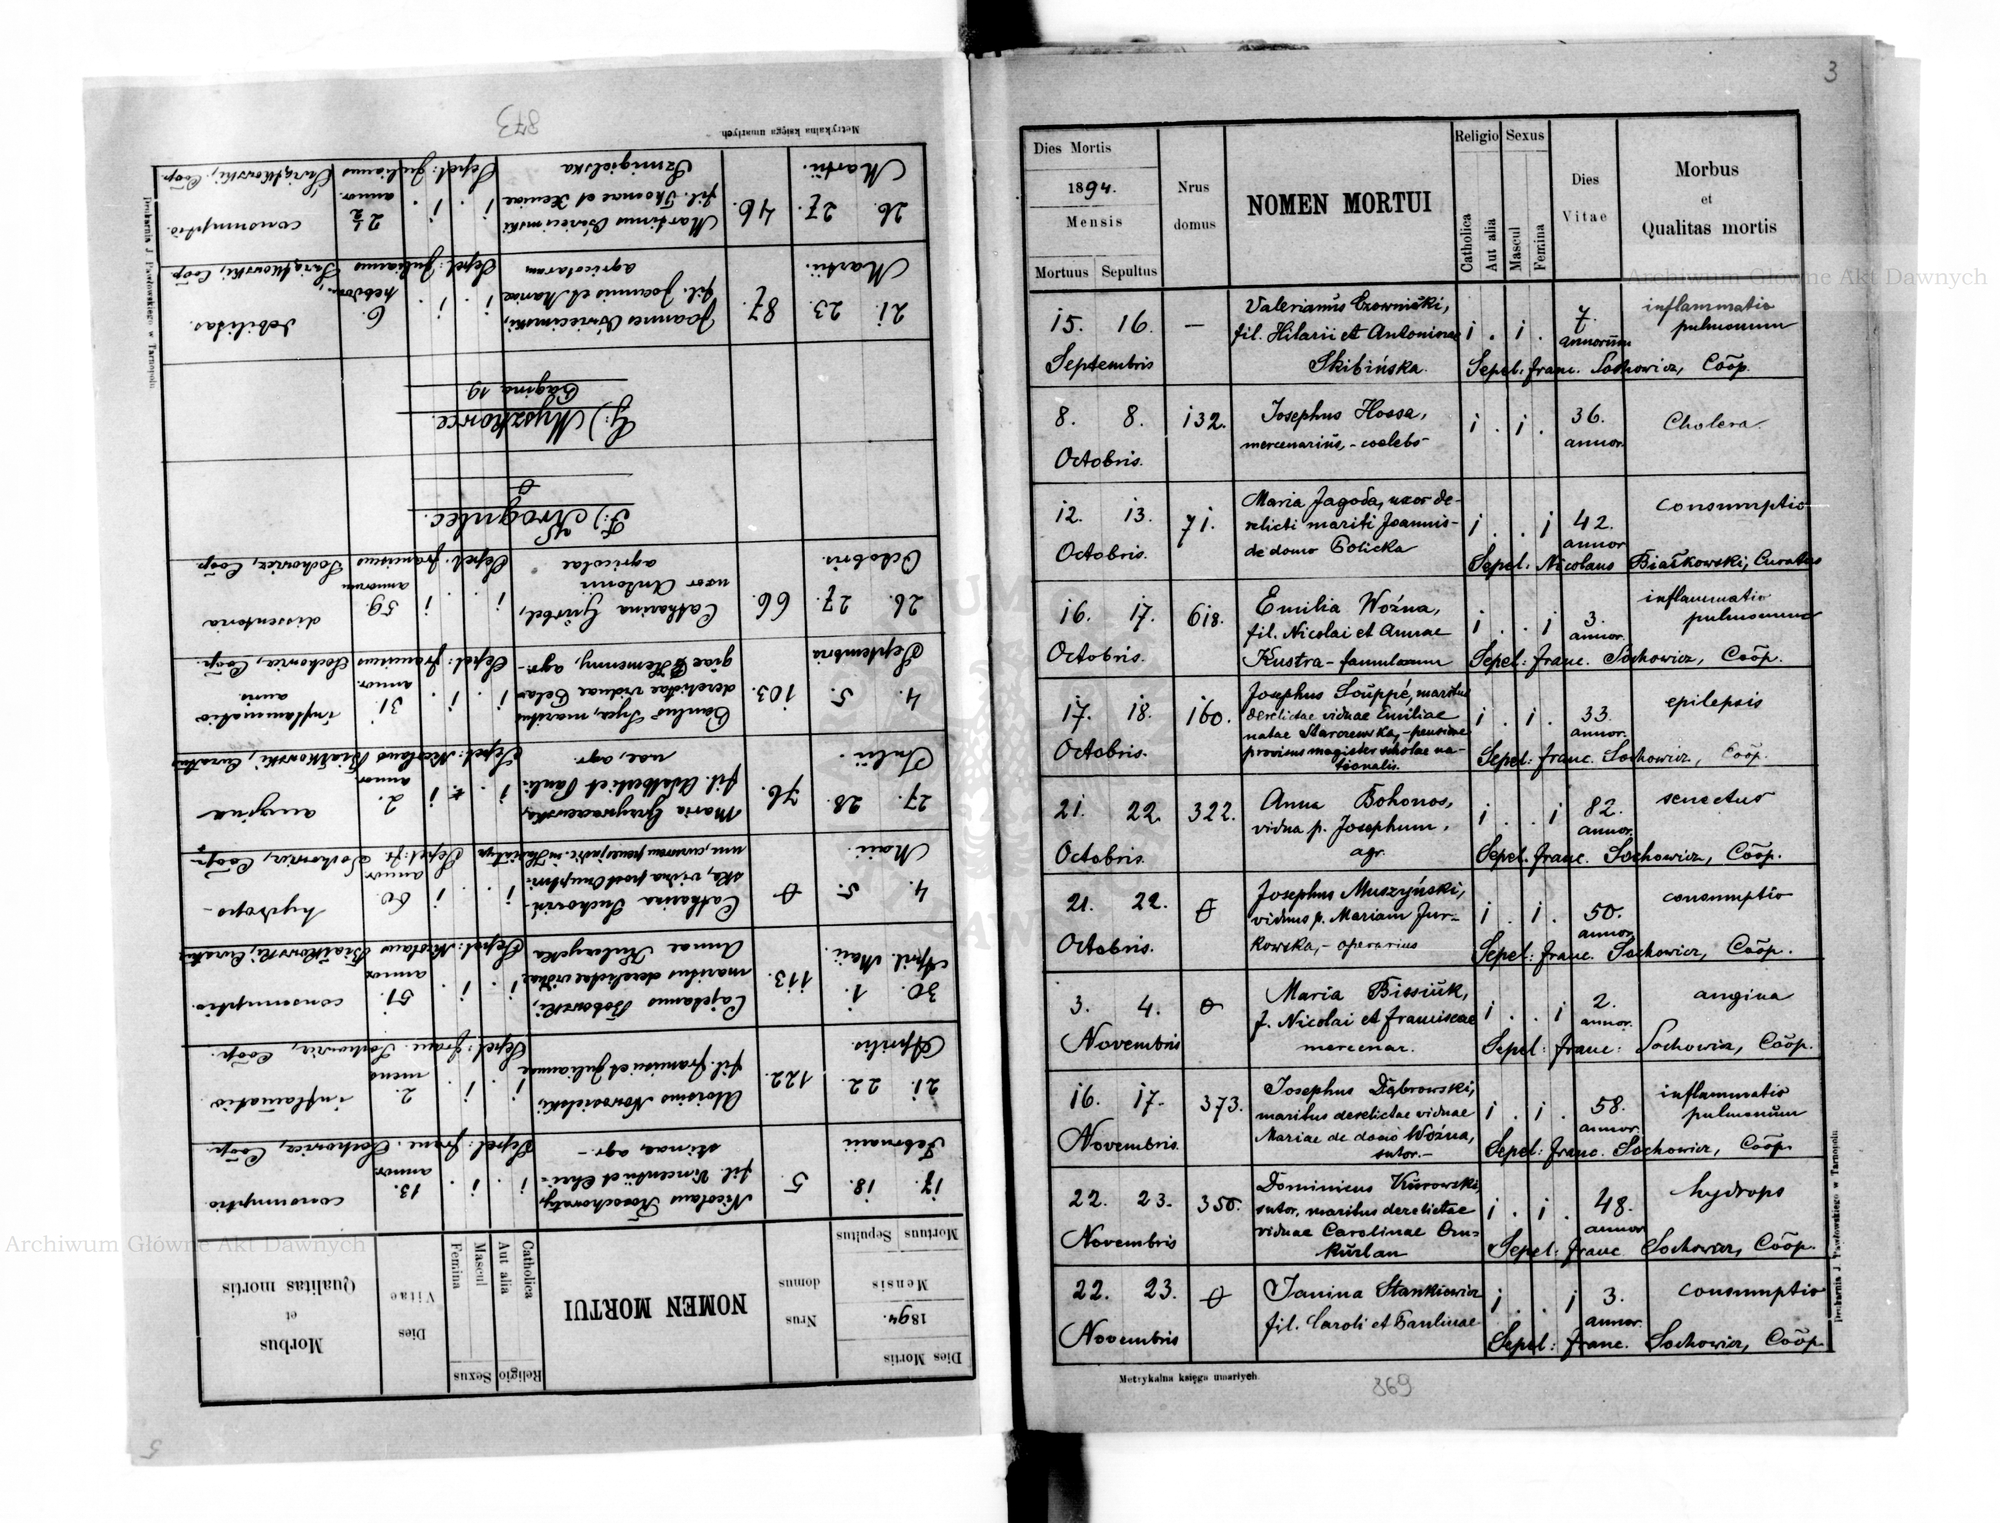 3
Dies Mortis
1894.
Mensis
Mortuus Sepultus
Nrus
domus
NOMEN MORTUI
Religio
Catholica
Aut alia
Sexus
Mascul
Femina
Dies
Vitae
Morbus
et
Qualitas mortis
15. 16. — Valerianus Czownicki, i . i . 7. inflammatio
fil. Hilarii et Antoninae annorum pulmonum
Septembris Skibińska. Sepel: franc. Sochowicz, Coop.
8. 8. 132. Josephus Hossa, i . i . 36. Cholera.
mercenarius, - coelebs - annor.
Octobris.
12. 13. 71. Maria Jagoda, uxor de- i . . i 42. consumptio
relicti mariti Joannis - annor
Octobris. de domo Policka Sepel: Nicolaus Białkowski, Curatus
16. 17. 618. Emilia Woźna, i . . i 3. inflammatio
fil. Nicolai et Annae annor. pulmonum
Octobris. Kustra - famulorum Sepel: franc. Sochowicz, Coop.
17. 18. 160. Josephus Souppé, maritus i . i . 33. epilepsis
derelictae viduae Emiliae annor.
natae Starczewska, - pensione
Octobris. provisus magister scholae na- Sepel: franc. Sochowicz, Coop.
tionalis.
21. 22. 322. Anna Bohonos, i . . i 82. senectus
vidua p. Josephum, annor.
Octobris. agr. Sepel. franc. Sochowicz, Coop.
21. 22. Josephus Muszyński, i . i . 50. consumptio
viduus p. Mariam Jur- annor
Octobris. kowska, - operarius Sepel: franc. Sochowicz, Coop.
3. 4. Maria Bissiuk, i . . i 2. angina
f. Nicolai et Franciscae annor.
Novembris mercenar. Sepel: franc: Sochowicz, Coop.
16. 17. 373. Josephus Dąbrowski, i . i . 58. inflammatio
maritus derelictae viduae annor. pulmonum
Mariae de domo Woźna,
Novembris. sutor. - Sepel: franc. Sochowicz, Coop.
22. 23. 350. Dominicus Kurowski, i . i . 48. hydrops
sutor, maritus derelictae annor
viduae Carolinae
Novembris Sepel: franc Sochowicz, Coop.
22. 23. Janina Stankiewicz i . . i 3. consumptio
fil. Caroli et Paulinae annor.
Novembris Sepel: franc. Sochowicz, Coop.
Metrykalna księga umarłych.
869
Drukarnia J. Pawłowskiego w Tarnopolu
5
Dies Mortis
1894.
Mensis
Mortuus Sepultus
Nrus
domus
NOMEN MORTUI
Religio
Catholica
Aut alia
Sexus
Mascul
Femina
Dies
Vitae
Morbus
et
Qualitas mortis
17. 18. 5. Nicolaus i . i . 13. consumptio
fil. Vincentii et annor.
Februarii agr. - Sepel: franc. Sochowicz, Coop.
21. 22. 122. Aloisius Nowosielski, i . i . 2. inflamatio
fil. Francisci et Juliannae mens
Aprilis. Sepel: franc. Sochowicz, Coop.
30. 1. 113. Cajetanus Bobowski, i . i . 51. consumptio.
maritus derelictae viduae annor
April. Maii Annae Sepel: Nicolaus Białkowski, Curatus
4. 5. Catharina i . . i 60. hydrops -
ska, vidua post annor
Maii. Sepel: fr. Sochowicz, Coop.
27. 28. 76. Maria i . . i 2. angina
fil. Adalberti et Pauli- annor
Julii. nae, agr. Sepel: Nicolaus Białkowski, Curatus
4. 5. 103. Paulus maritus i . i . 31. inflammatio
derelictae viduae Pela- annor. auris
Septembris giae agr. - Sepel: Franciscus Sochowicz, Coop.
26. 27. 66. Catharina i . . i 59. dissenteria
uxor Antonii annorum
Octobris. agricolae Sepel. Franciscus Sochowicz, Coop.
F:)
G:) Myszkowce.
Pagina 19
21. 23. 87. Joannes Oświecimski, i . i . 6. debilitas.
fil. Joannis et Mariae hebdom.
Martii. agricolarum Sepel: Julianus Świątkowski, Coop.
26. 27. 46. Martinus Oświecimski i . i . 2½ consumptio.
fil. Thomae et Xeniae annor.
Martii. Szmigielska Sepel: Julianus Świątkowski, Coop.
Metrykalna księga umarłych
873
Drukarnia J. Pawłowskiego w Tarnopolu
Archiwum Główne Akt Dawnych
Archiwum Główne Akt Dawnych